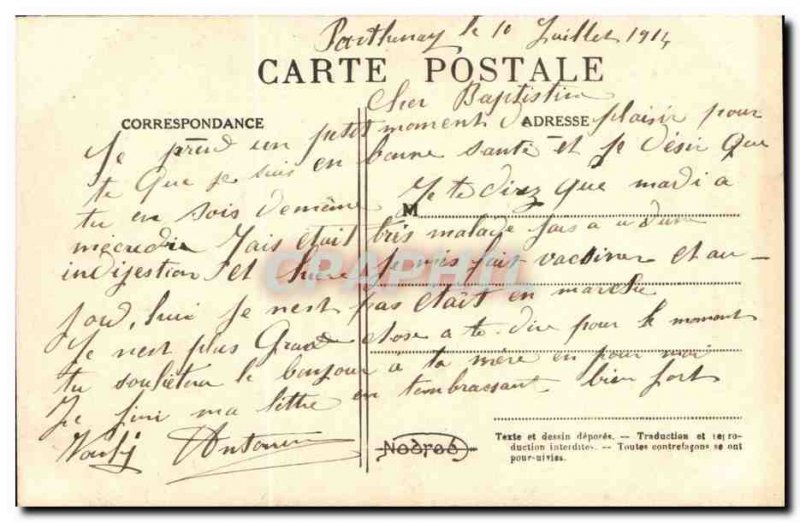 Parthenay le 10 Juillet 1914
CARTE POSTALE
Cher Baptistin
CORRESPONDANCE
ADRESSE
Je prend un petit moment de plaisir pour
te que je suis en bonne santé et je désir que
tu en sois de même Je te diez que mardi a
M
mécredie j'ais était pris malade fais a u dune
indijestion et hiere je mis fait vacsiner et au-
jourd'hui je nest pas etait en marche
Je nest plus Grand chose a te dire pour le moment
tu souhetera le bonjour à ta mère en pour moi
Je fini ma lettre en tembrassant bien fort
Antonin
Nodred
CRAPHIL
Texte et dessin déposés. — Traduction et repro-
duction interdites. — Toutes contrefaçons se ont
pour-uivies.